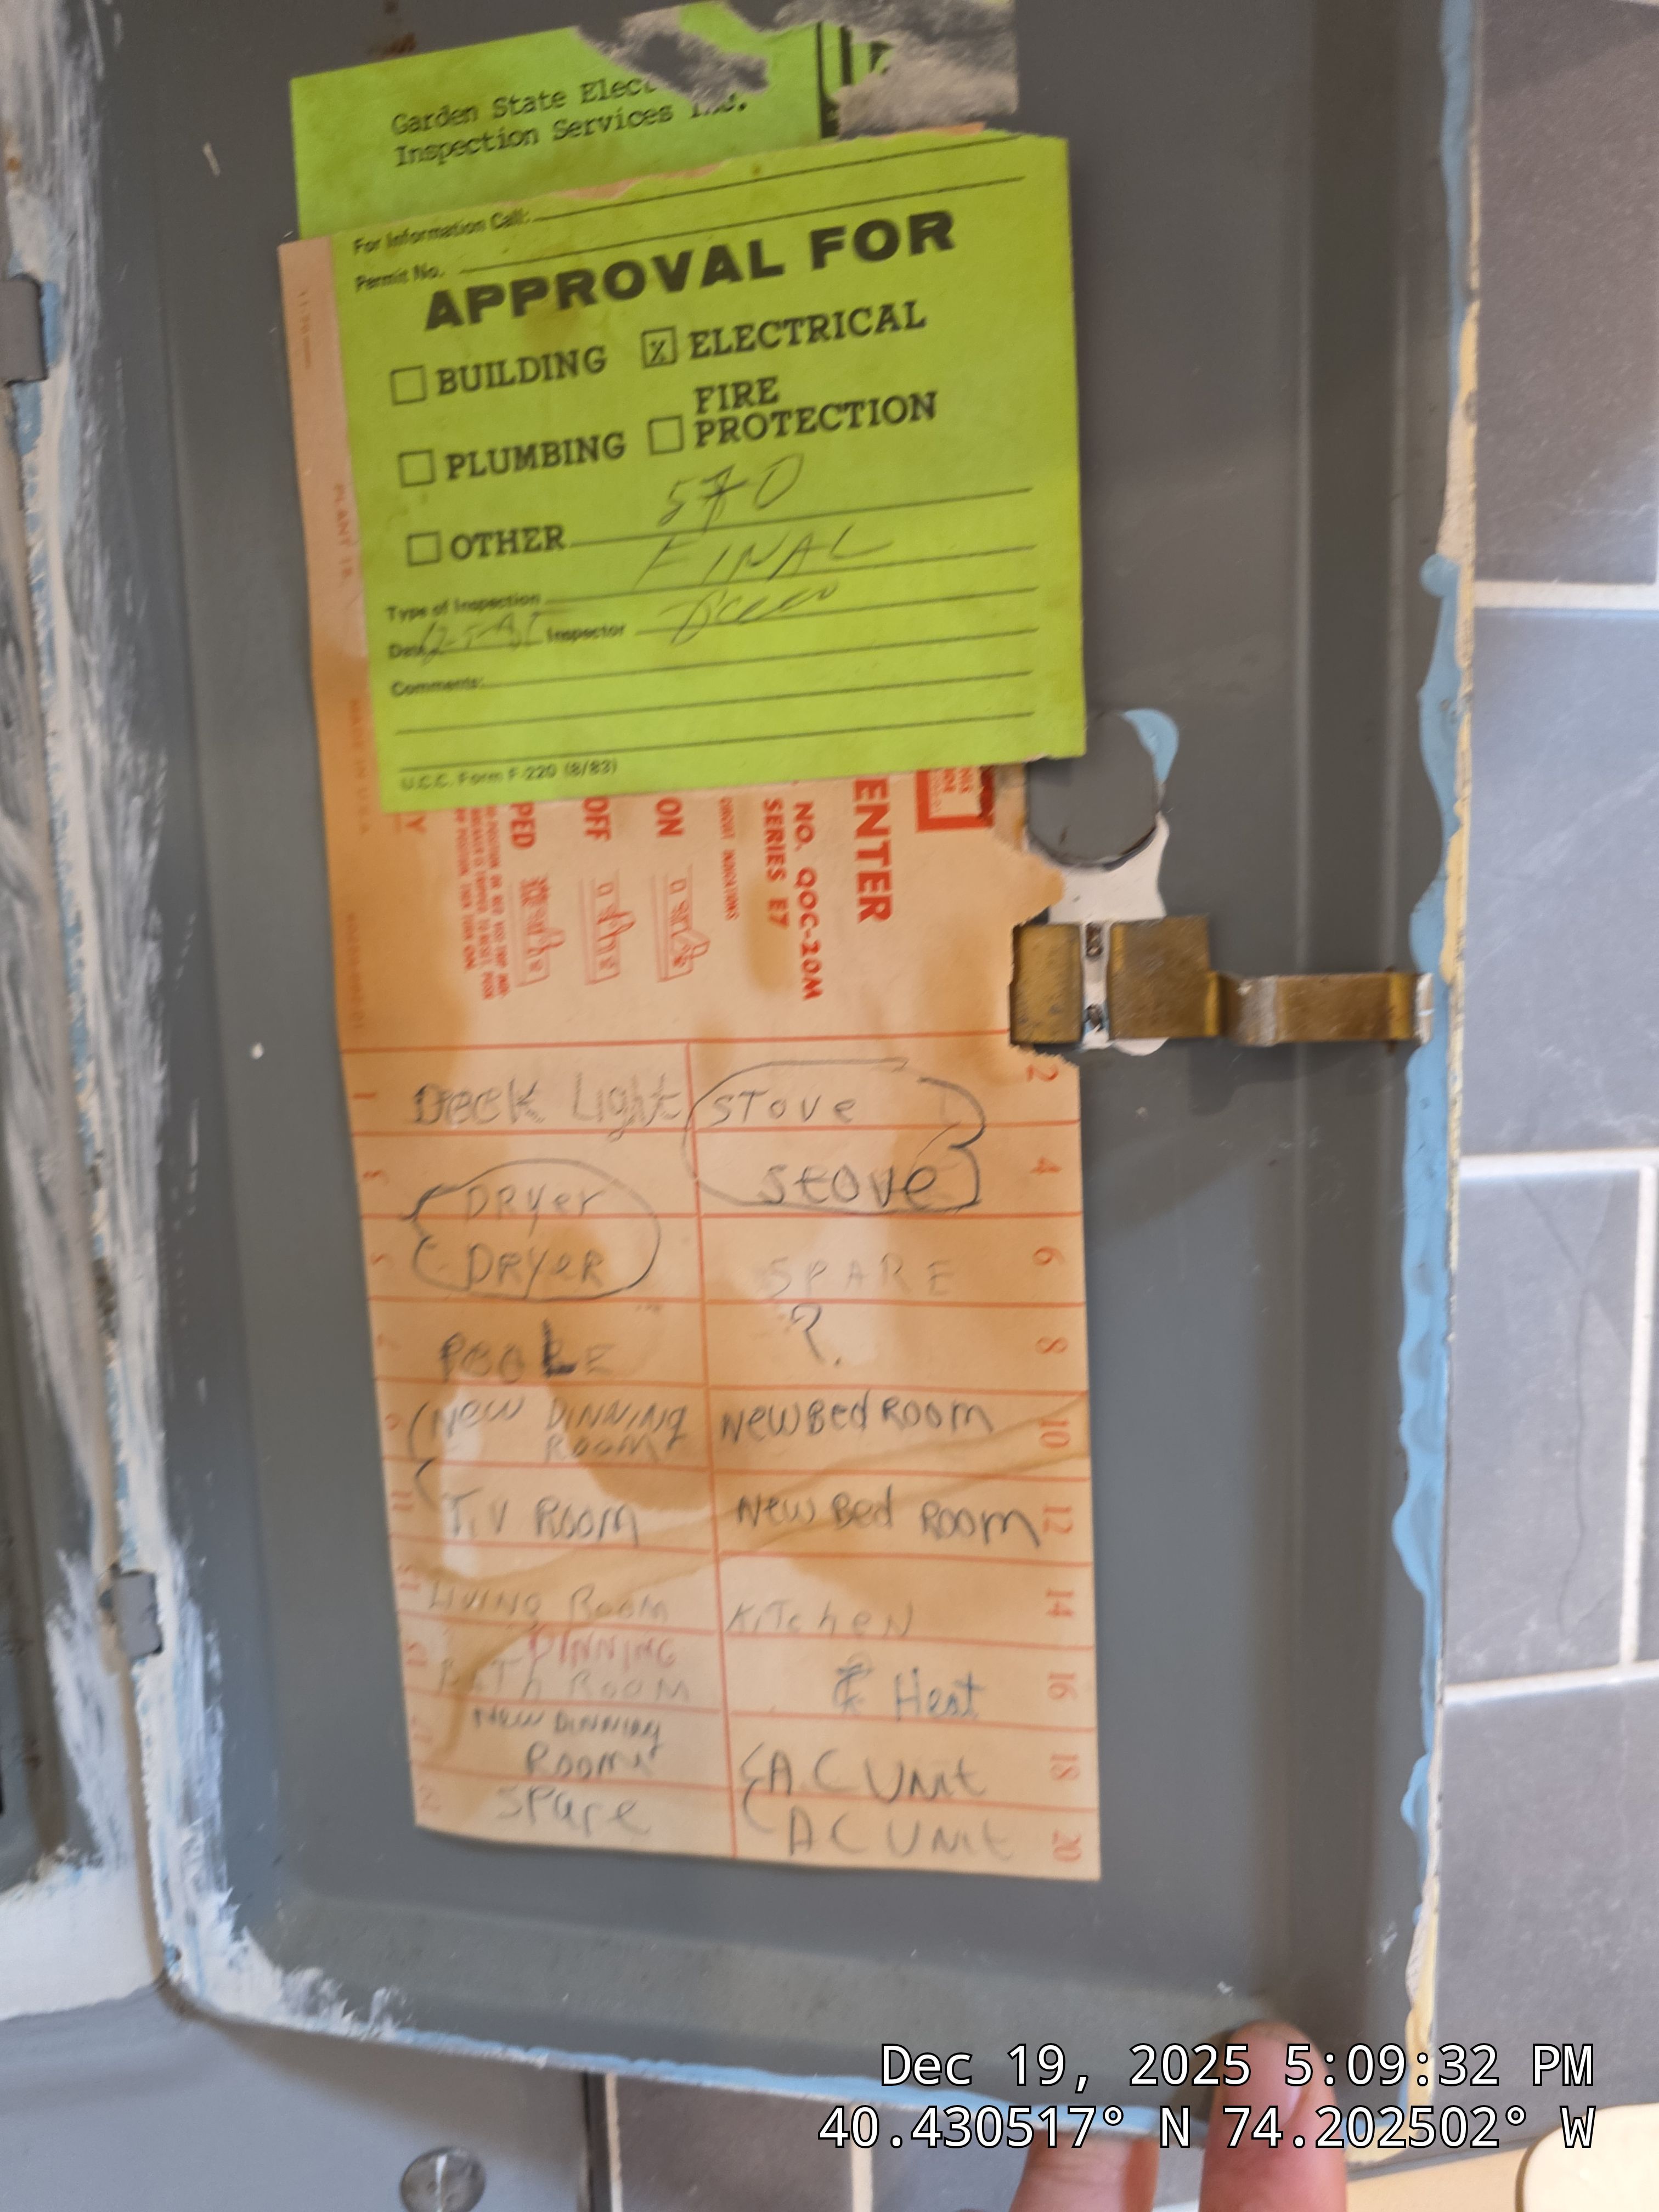 Garden State Elect
Inspection Services Inc.
For Information Call:
Permit No.
APPROVAL FOR
BUILDING
ELECTRICAL
PLUMBING
FIRE
PROTECTION
570
OTHER
FINAL
Type of Inspection
Date Inspector
Comments:
U.C.C. Form F-220 (8/83)
PLANT
MADE IN U.S.A.
ENTER
NO. QOC-20M
SERIES E7
ON
OFF
PED
1 Deck Light
STove 2
3 DRyer
stove 4
5 DRyeR
SPARE 6
POOLE
? 8
9 New DINNING
ROOM
New Bed Room 10
11 T.V Room
New Bed Room 12
13 LIVING Room
KITcheN 14
15 DINNING
BATH ROOM
Heat 16
New DINNING
Room
A.C Unit 18
SPare
AC Unit 20
Dec 19, 2025 5:09:32 PM
40.430517° N 74.202502° W